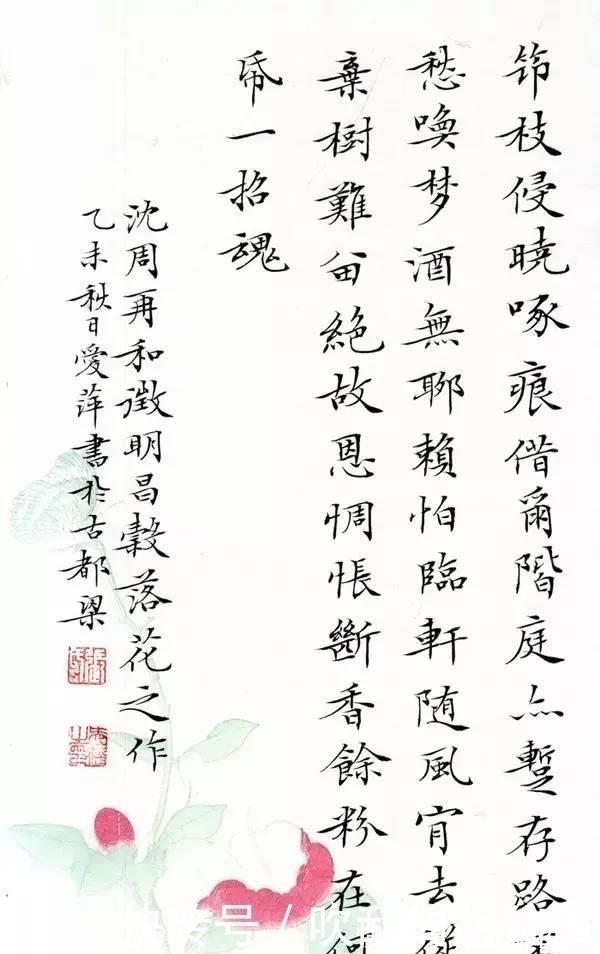 枝侵曉啄痕借爾階庭亦蹔存路
愁喚梦酒無聊賴怕臨軒随風肯去從
棄樹難留絕故恩惆悵斷香餘粉在何
帋一招魂
沈周再和徵明昌穀落花之作
乙未秋日愛萍書於古都梁
快传号 /